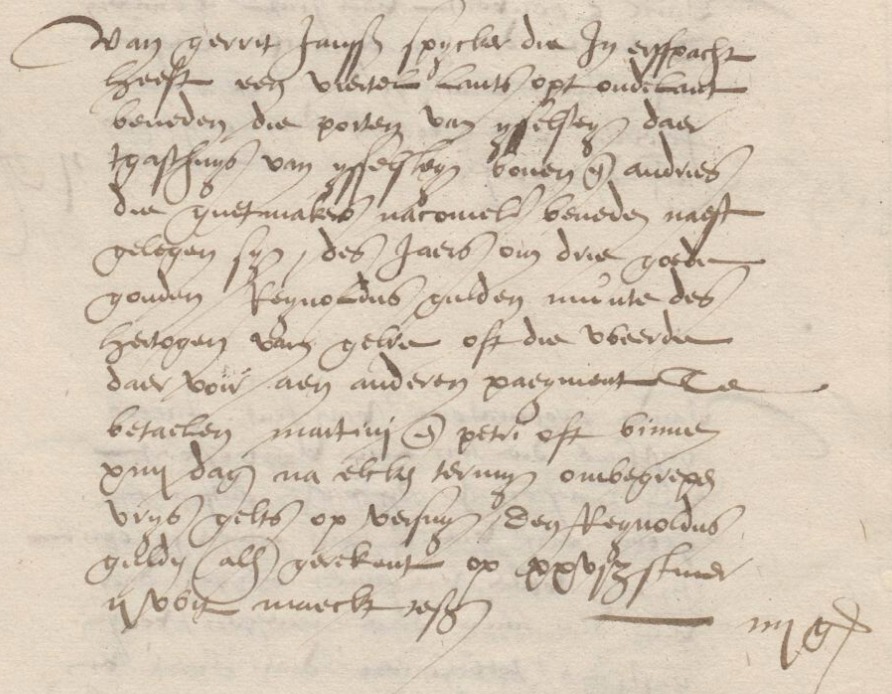 Van gerrit Janss spycker die In erffpacht
heeft een viertel lants opt oudelant
beneden die porten van ysselsteyn daer
tgasthuys van ysselsteyn boven en andries
die quetmakers nacomel beneden naest
gelegen syn, des Jaers om drie goede
gouden Reynoldus gulden munte des
hertogen van gelre oft die weerde
daer voir aen anderen paeyment Te
betaelen martini en petri oft binnen
xiiij dagen na elcken termyn ombegrepen
vrys gelts op versuym, den Reynoldus
gulden als gerekent op xxvj stuver
ij maeckt
iiij g